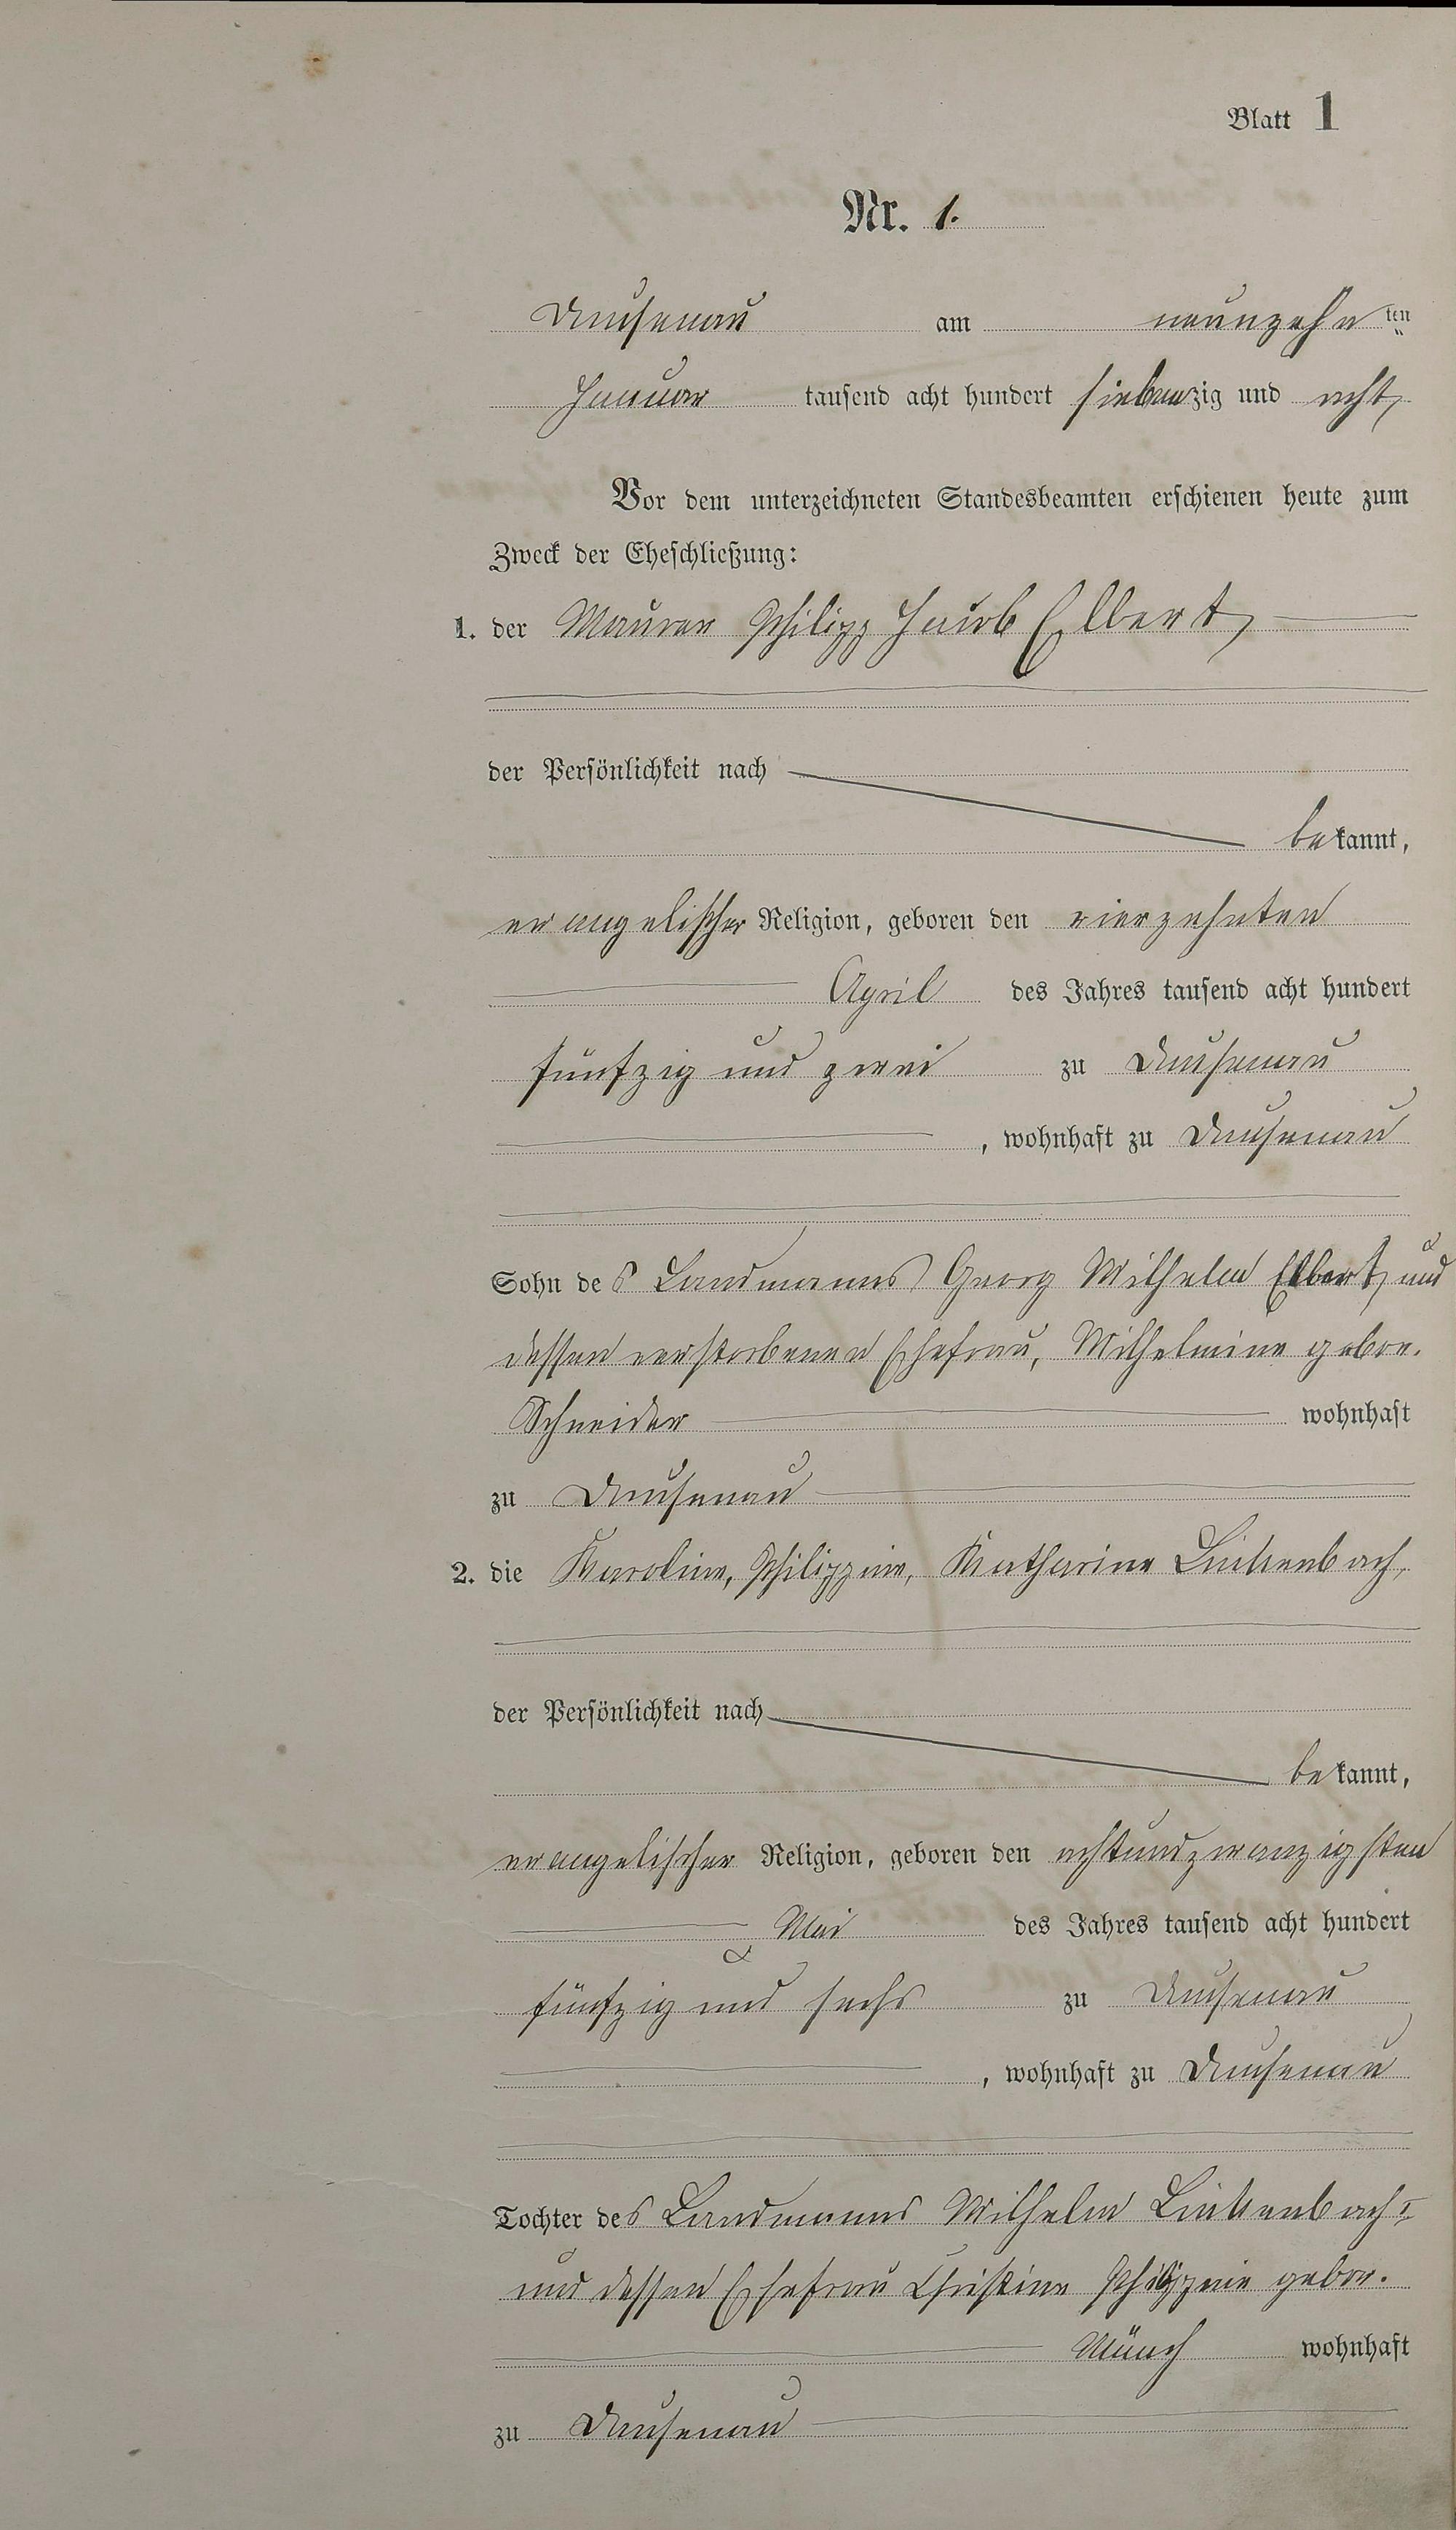 Blatt 1
Nr. 1.
Dausenau am neunzehnten
Januar tausend acht hundert siebenzig und acht,
Vor dem unterzeichneten Standesbeamten erschienen heute zum
Zweck der Eheschließung:
1. der Maurer Philipp Jacob Elbert,
der Persönlichkeit nach
bekannt,
evangelischer Religion, geboren den vierzehnten
April des Jahres tausend acht hundert
fünfzig und zwei zu Dausenau
, wohnhaft zu Dausenau
Sohn des Landmanns Georg Wilhelm Elbert, und
dessen verstorbenen Ehefrau, Wilhelmine gebor.
Schneider wohnhaft
zu Dausenau
2. die Karoline, Philippine, Katharine Linkenbach,
der Persönlichkeit nach
bekannt,
evangelischer Religion, geboren den achtundzwanzigsten
Mai des Jahres tausend acht hundert
fünfzig und sechs zu Dausenau
, wohnhaft zu Dausenau
Tochter des Landmanns Wilhelm Linkenbach
und dessen Ehefrau Christine Philippine gebor.
Münch wohnhaft
zu Dausenau